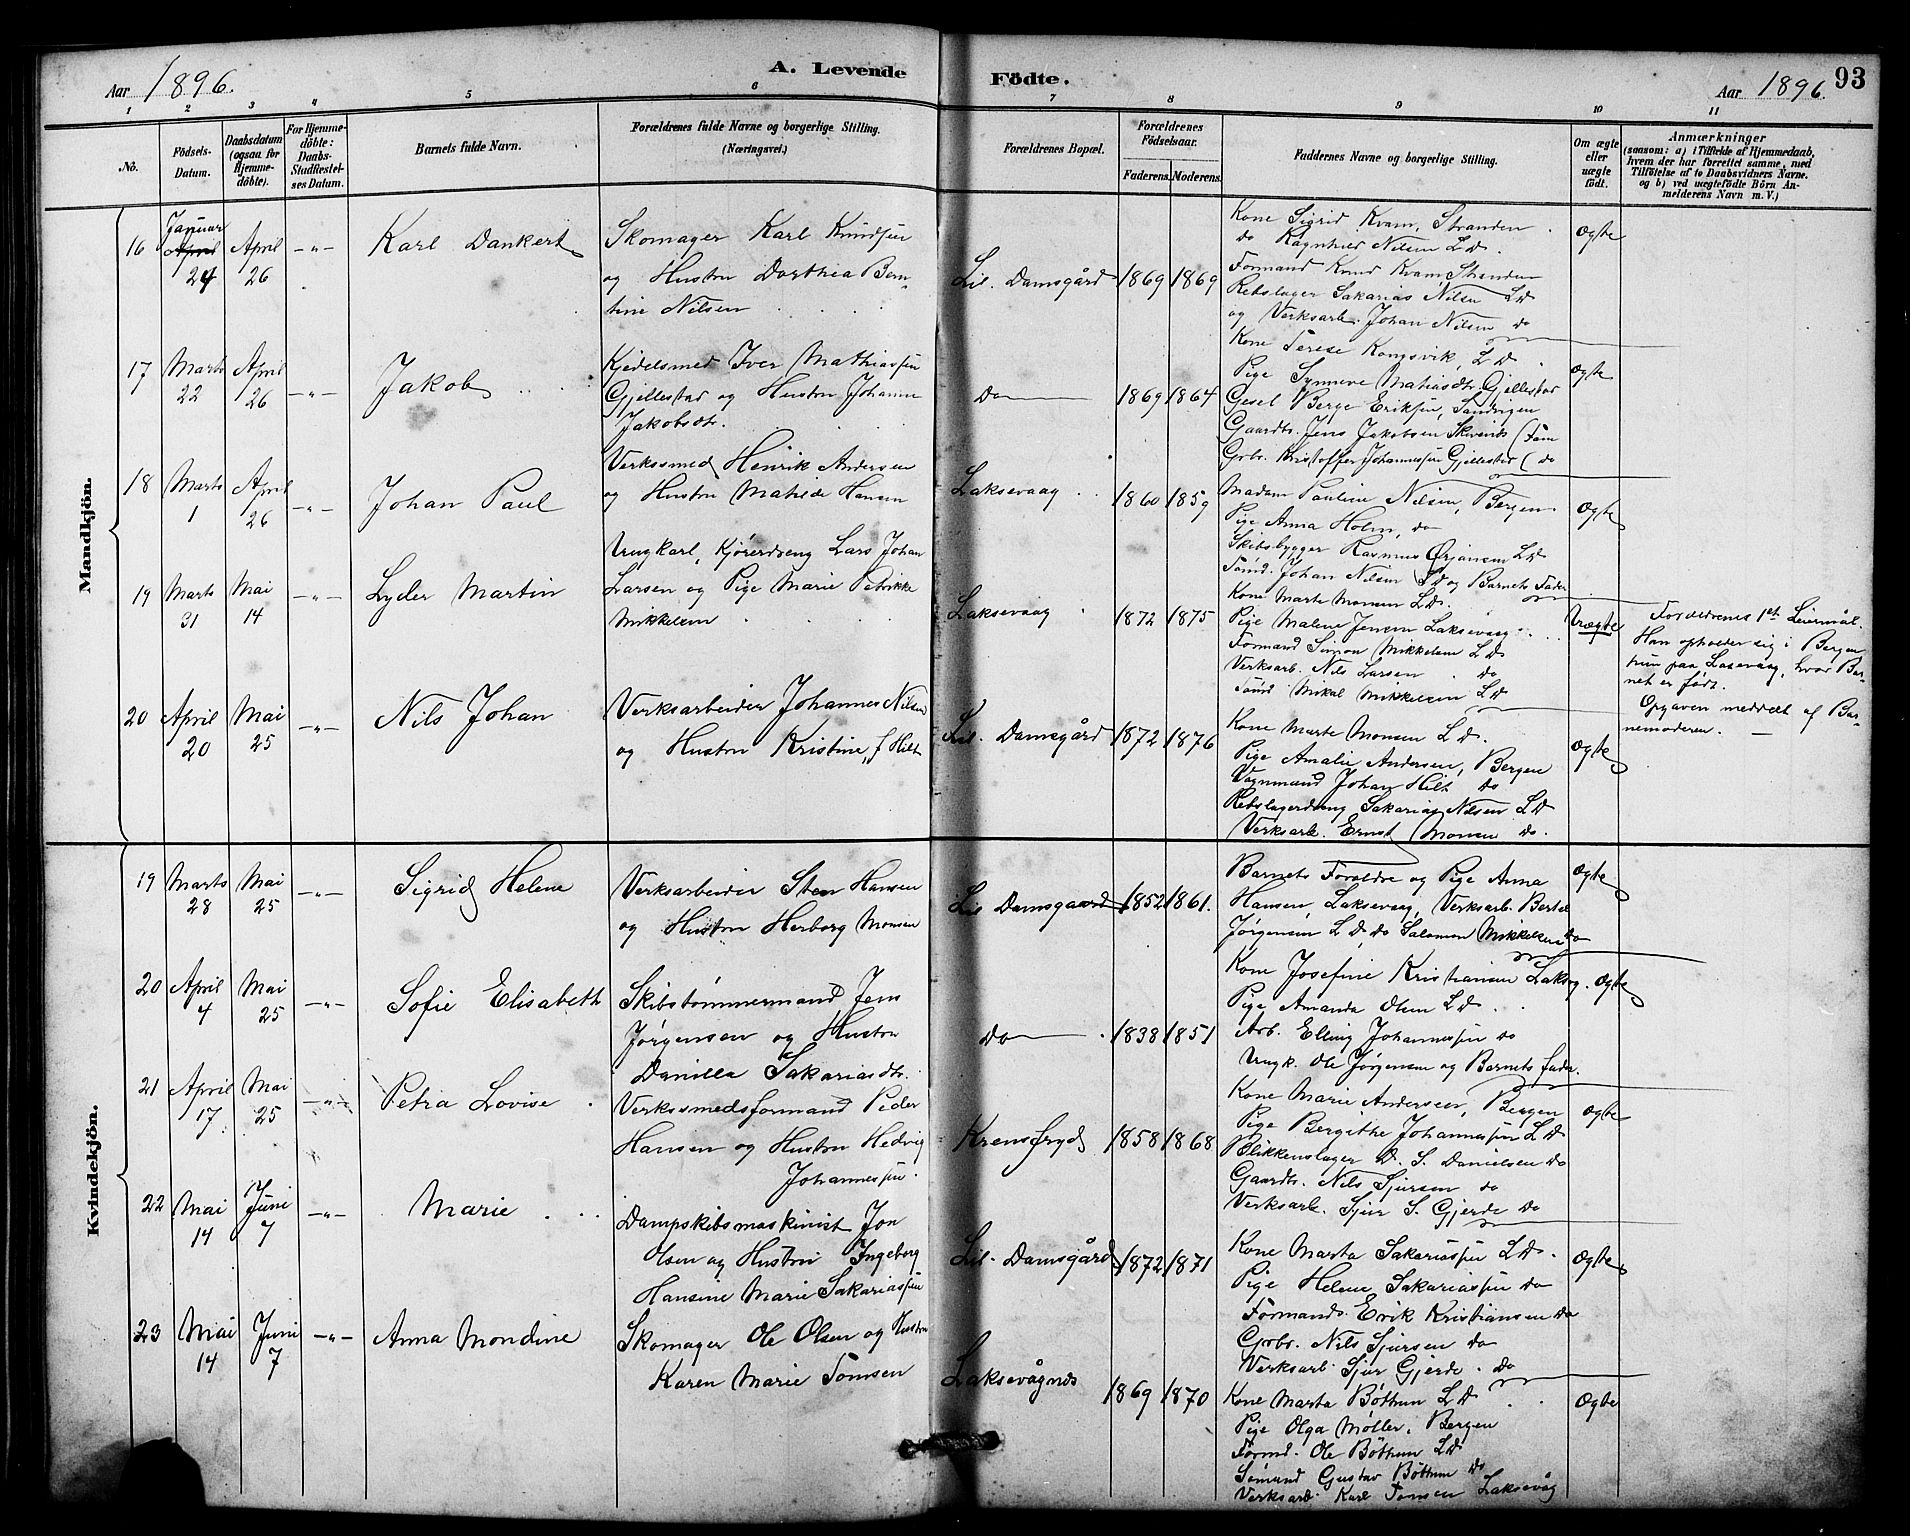 Aar 1896.
A. Levende
Födte.
Aar 1896.
93
1 2 3 4 5 6 7 8 9 10 11
No.
Födsels-
Datum.
Daabsdatum
(ogsaa for
Hjemme-
döbte).
For Hjemme-
döbte:
Daabs-
Stadfæstel-
ses Datum.
Barnets fulde Navn.
Forældrenes fulde Navne og borgerlige Stilling.
(Næringsvei.)
Forældrenes Bopæl.
Forældrenes
Födselsaar.
Faderens. Moderens.
Faddernes Navne og borgerlige Stilling.
Om ægte
eller
uægte
födt.
Anmærkninger
(saasom: a) i Tilfælde af Hjemmedaab,
hvem der har forrettet samme, med
Tilföielse af to Daabsvidners Navne.
og b) ved uægtefödte Börn An-
melderens Navn m. V.)
Mandkjön.
16
Januar
April
24
April
26
-"-
Karl Dankert
Skomager Karl Knudsen
og Hustru Dorthea Bern-
tine Nilsen
Lil. Damsgård
1869 1869
Kone Sigrid Kvam, Stranden
do Ragnhild Nilsen L D.
Formand Knud Kvam, Stranden
Rebslager Sakarias Nilsen L D
og Verksarb. Johan Nilsen do
Ogte
17
Marts
22
April
26
-"-
Jakob
Kjedelsmed Iver Mathiassen
Gjellestad og Hustru Johanne
Jakobsdt.
Do
1869 1864
Kone Terese Kongsvik, L D.
Pige Synneve Matiasdt. Gjellestad
Gesel Berge Eriksen, Sandvigen
Gaardb. Jens Jakobsen (Fane
Grbr. Kristoffer Johannessen Gjellestad (do
Ogte
18
Marts
1
April
26
-"-
Johan Paul
Verkssmed Henrik Andersen
og Hustru Matilde Hansen
Laksevaag
1860 1859
Madam Pauline Nilsen, Bergen
Pige Anna Holm, do
Skibsbygger Rasmus Ørjansen L D
Sømd. Johan Nilsen L D og Barnets Fader
Ogte
19
Marts
31
Mai
14
-"-
Lyder Martin
Ungkarl, Kjøredreng Lars Johan
Larsen og Pige Marie Petrikke
Mikkelsen
Laksevaag
1872 1875
Kone Marte Monsen L D.
Pige Malene Jensen Laksevaag
Formand Simon Mikkelsen L D
Verksarb. Nils Larsen do
Sømd Mikal Mikkelsen L D
Uægte
Forældrenes 1ste Leiermål.
Han opholder sig i Bergen
hun paa Laksevaag, hvor Bar-
net er født.
Opgaven meddelt af Bar-
nemoderen.
20
April
20
Mai
25
-"-
Nils Johan
Verksarbeider Johannes Nilsen
og Hustru Kristine, f. Hilt
Lil. Damsgård
1872 1876
Kone Marte Monsen L D.
Pige Amalie Andersen, Bergen
Vognmand Johan Hilt do
Rebslagerdreng Sakarias Nilsen L D
Verksarb. Ernst Monsen do.
Ogte
Kvindekjön.
19
Marts
28
Mai
25
-"-
Sigrid Helene
Verksarbeider Sten Hansen
og Hustru Herborg Monsen
Lil Damsgaard
1852 1861.
Barnets Forældre og Pige Anna
Hansen, Laksevaag, Verksarb. Bertel
Jørgensen L D, do Salomon Mikkelsen do
Ogte
20
April
4
Mai
25
-"-
Sofie Elisabeth
Skibstømmermand Jens
Jørgensen og Hustru
Danilla Sakariasdt.
do
1838 1851
Kone Josefine Kristiansen Laksvg.
Pige Amanda Olsen L D.
Arb. Elling Johannessen do
Ungk. Ole Jørgensen og Barnets fader.
Ogte
21
April
17
Mai
25
-"-
Petra Lovise
Verkssmedsformand Peder
Hansen og Hustru Hedvig
Johannessen.
Krensfryd
1858 1868
Kone Marie Andersen, Bergen
Pige Bergithe Johannessen L D
Blikkenslager D. S. Danielsen do
Gaardb. Nils Sjursen do
Verksarb. Sjur S. Gjerde do
Ogte
22
Mai
14
Juni
7
-"-
Marie
Dampskibsmaskinist Jon
Olsen og Hustru Ingeborg
Hansine Marie Sakariassen
Lil. Damsgård
1872 1871
Kone Marta Sakariassen L D.
Pige Helene Sakariassen do
Formand. Erik Kristiansen do
Grbr. Nils Sjursen do
Verksarb. Sjur Gjerde. do
Ogte
23
Mai
14
Juni
7
-"-
Anna Mondine
Skomager Ole Olsen og Hustru
Karen Marie Tomsen
Laksevågnes
1869 1870
Kone Marta Bøthun L D
Pige Olga Møller, Bergen
Formd. Ole Bøthun L D
Sømand Gustav Bøthun do
Verksarb. Karl Tomsen Laksevåg
Ogte